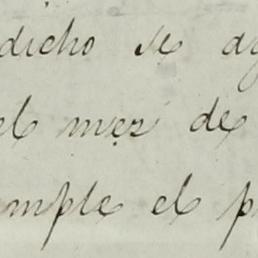 dicho se
el mes de
mple el p